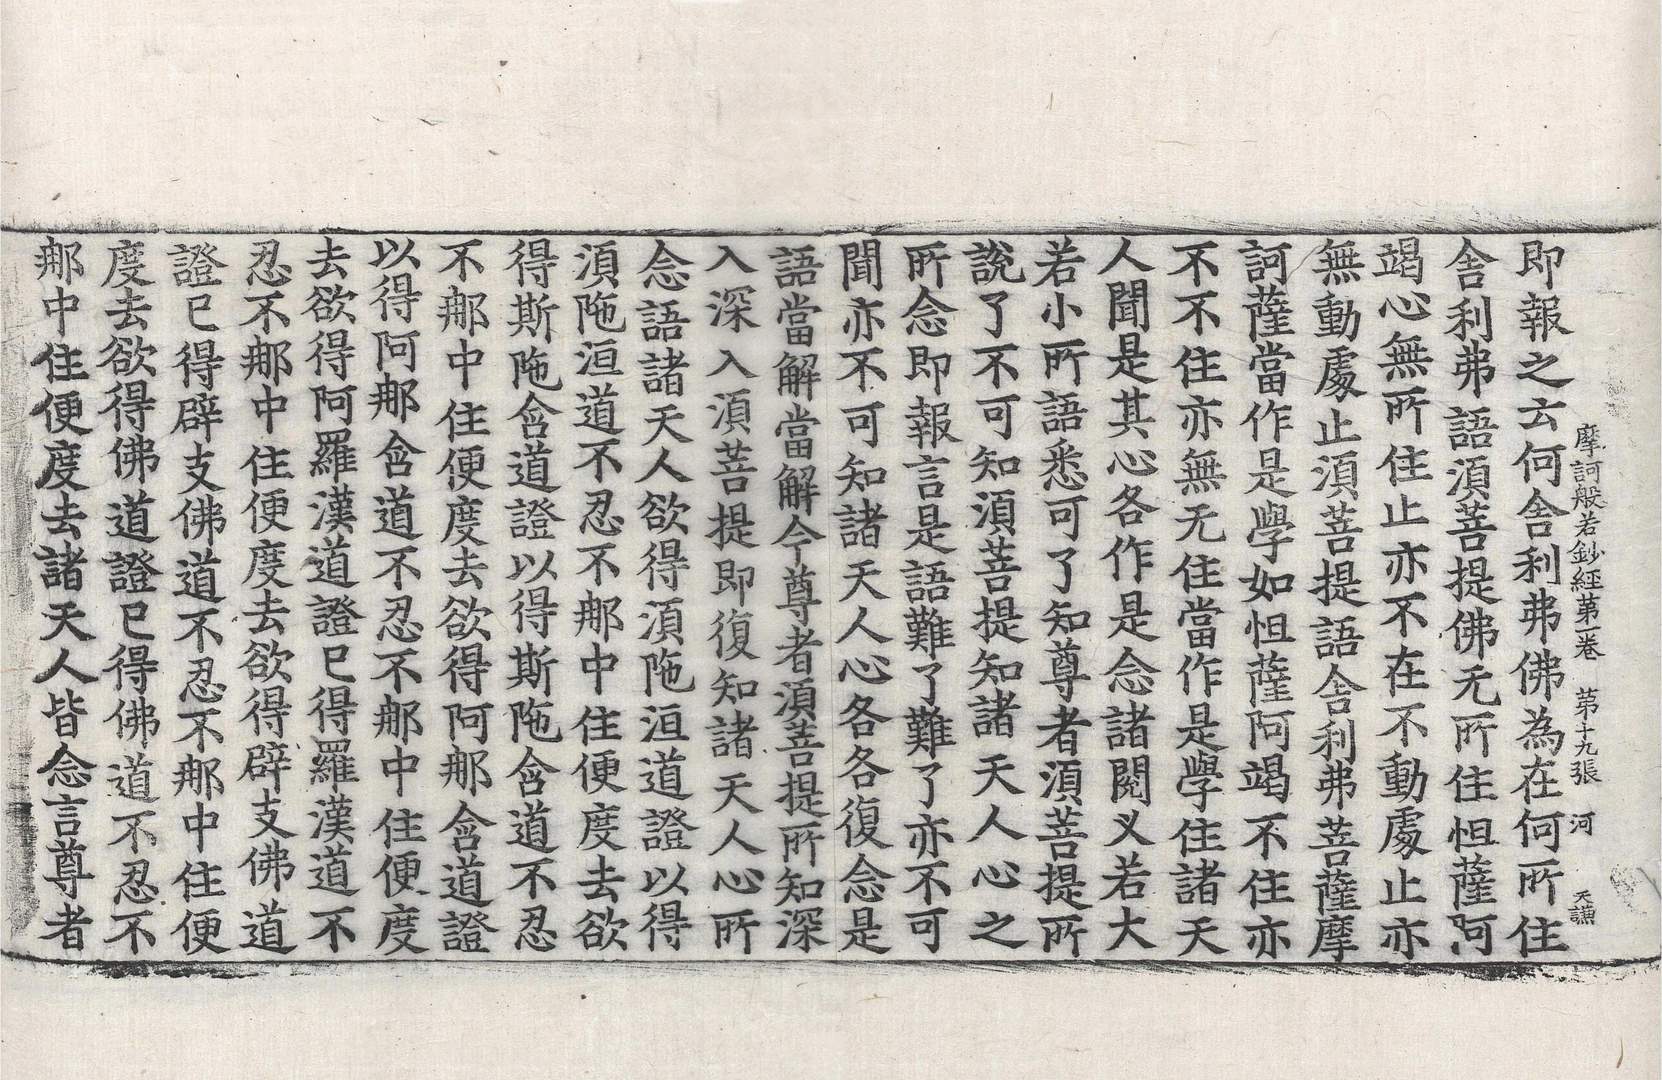 摩訶般若鈔經第一卷　第十九張　河　天謙
即報之云何舍利弗佛為在何所住
舍利弗語須菩提佛无所住怛薩阿
竭心無所住止亦不在不動處止亦
無動處止須菩提語舍利弗菩薩摩
訶薩當作是學如怛薩阿竭不住亦
不不住亦無无住當作是學住諸天
人聞是其心各作是念諸閱叉若大
若小所語悉可了知尊者須菩提所
說了不可知須菩提知諸天人心之
所念即報言是語難了難了亦不可
聞亦不可知諸天人心各各復念是
語當解當解今尊者須菩提所知深
入深入須菩提即復知諸天人心所
念語諸天人欲得須陁洹道證以得
須陁洹道不忍不郍中住便度去欲
得斯陁含道證以得斯陁含道不忍
不郍中住便度去欲得阿郍含道證
以得阿郍含道不忍不郍中住便度
去欲得阿羅漢道證已得羅漢道不
忍不郍中住便度去欲得辟支佛道
證已得辟支佛道不忍不郍中住便
度去欲得佛道證已得佛道不忍不
郍中住便度去諸天人皆念言尊者